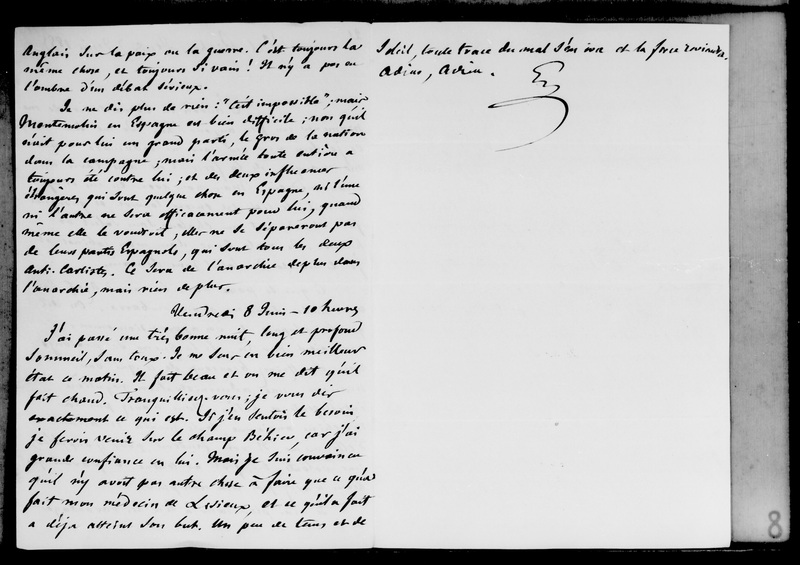 Anglais sur la paix ou la guerre. C'est toujours la
même chose, et toujours si vain! Il n'y a pas eu
l'ombre d'un débat sérieux.
Je ne dis plus de rien : "C'est impossible"; mais
Montemolin en Espagne est bien difficile; non qu'il
n'ait pour lui un grand parti, le gros de la nation
dans la campagne; mais l'armée toute entière a
toujours été contre lui; et des deux influences
étrangères qui sont quelque chose en Espagne, ni l'une
ni l'autre ne sera efficacement pour lui, quand
même elle le voudroit, elles ne se sépareront pas
de leurs partis Espagnols, qui sont tous les deux
anti-Carlistes. Ce sera de l'anarchie de plus dans
l'anarchie, mais rien de plus.
Vendredi 8 Juin - 10 heures
J'ai passé une très bonne nuit, long et profond
sommeil, sans toux. Je me sens en bien meilleur
état ce matin. Il fait beau et on me dit qu'il
fait chaud. Tranquillisez-vous; je vous dis
exactement ce qui est. Si j'en sentois le besoin
je ferois venir sur le champ Béhier, car j'ai
grande confiance en lui. Mais je suis convaincu
qu'il n'y avoit pas autre chose à faire que ce qu'a
fait mon médecin de Lisieux, et ce qu'il a fait
a déja atteint son but. Un peu de tems et de
soleil, toute trace du mal s'en ira et la force reviendra.
Adieu, Adieu.
8